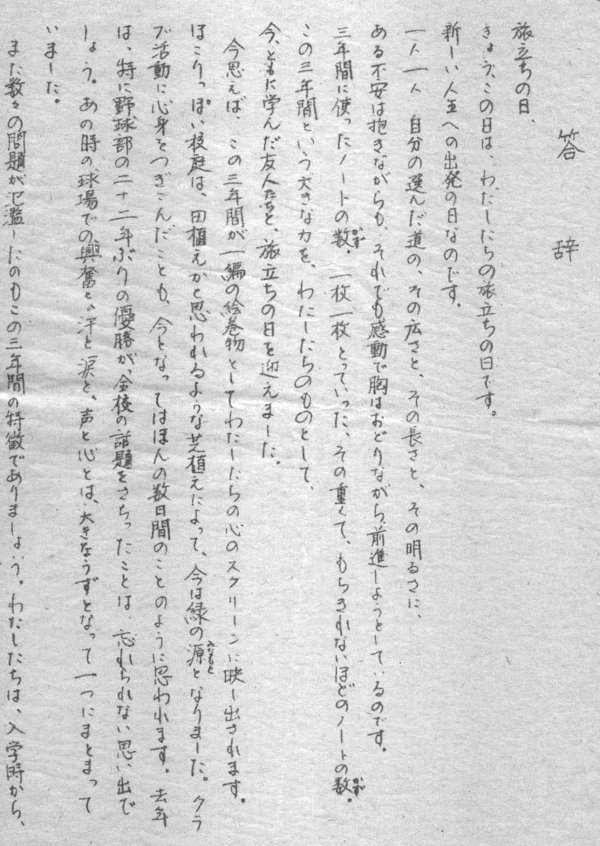 答辞
旅立ちの日、
きょう、この日は、わたしたちの旅立ちの日です。
新しい人生への出発の日なのです。
一人一人　自分の選んだ道の、その広さと、その長さと、その明るさに、
ある不安は抱きながらも、それでも感動で胸はおどりながら、前進しようとしているのです。
三年間に使ったノートの数。一枚一枚とっていった、その重くて、もちきれないほどのノートの数。
この三年間という大きな力を、わたしたちのものとして、
今、ともに学んだ友人たちと、旅立ちの日を迎えました。
今思えば、この三年間が一編の絵巻物としてわたしたちの心のスクリーンに映し出されます。
ほこりっぽい校庭は、田植えかと思われるような芝植えによって、今は緑の源となりました。クラ
ブ活動に心身をつぎこんだことも、今となってはほんの数日間のことのように思われます。去年
は、特に野球部の二十二年ぶりの優勝が、全校の話題をさらったことは、忘れられない思い出で
しょう。あの時の球場での興奮と、汗と涙と、声と心とは、大きなうずとなって一つにまとまって
いました。
また数々の問題が氾濫したのもこの三年間の特徴でありましょう。わたしたちは、入学時から、